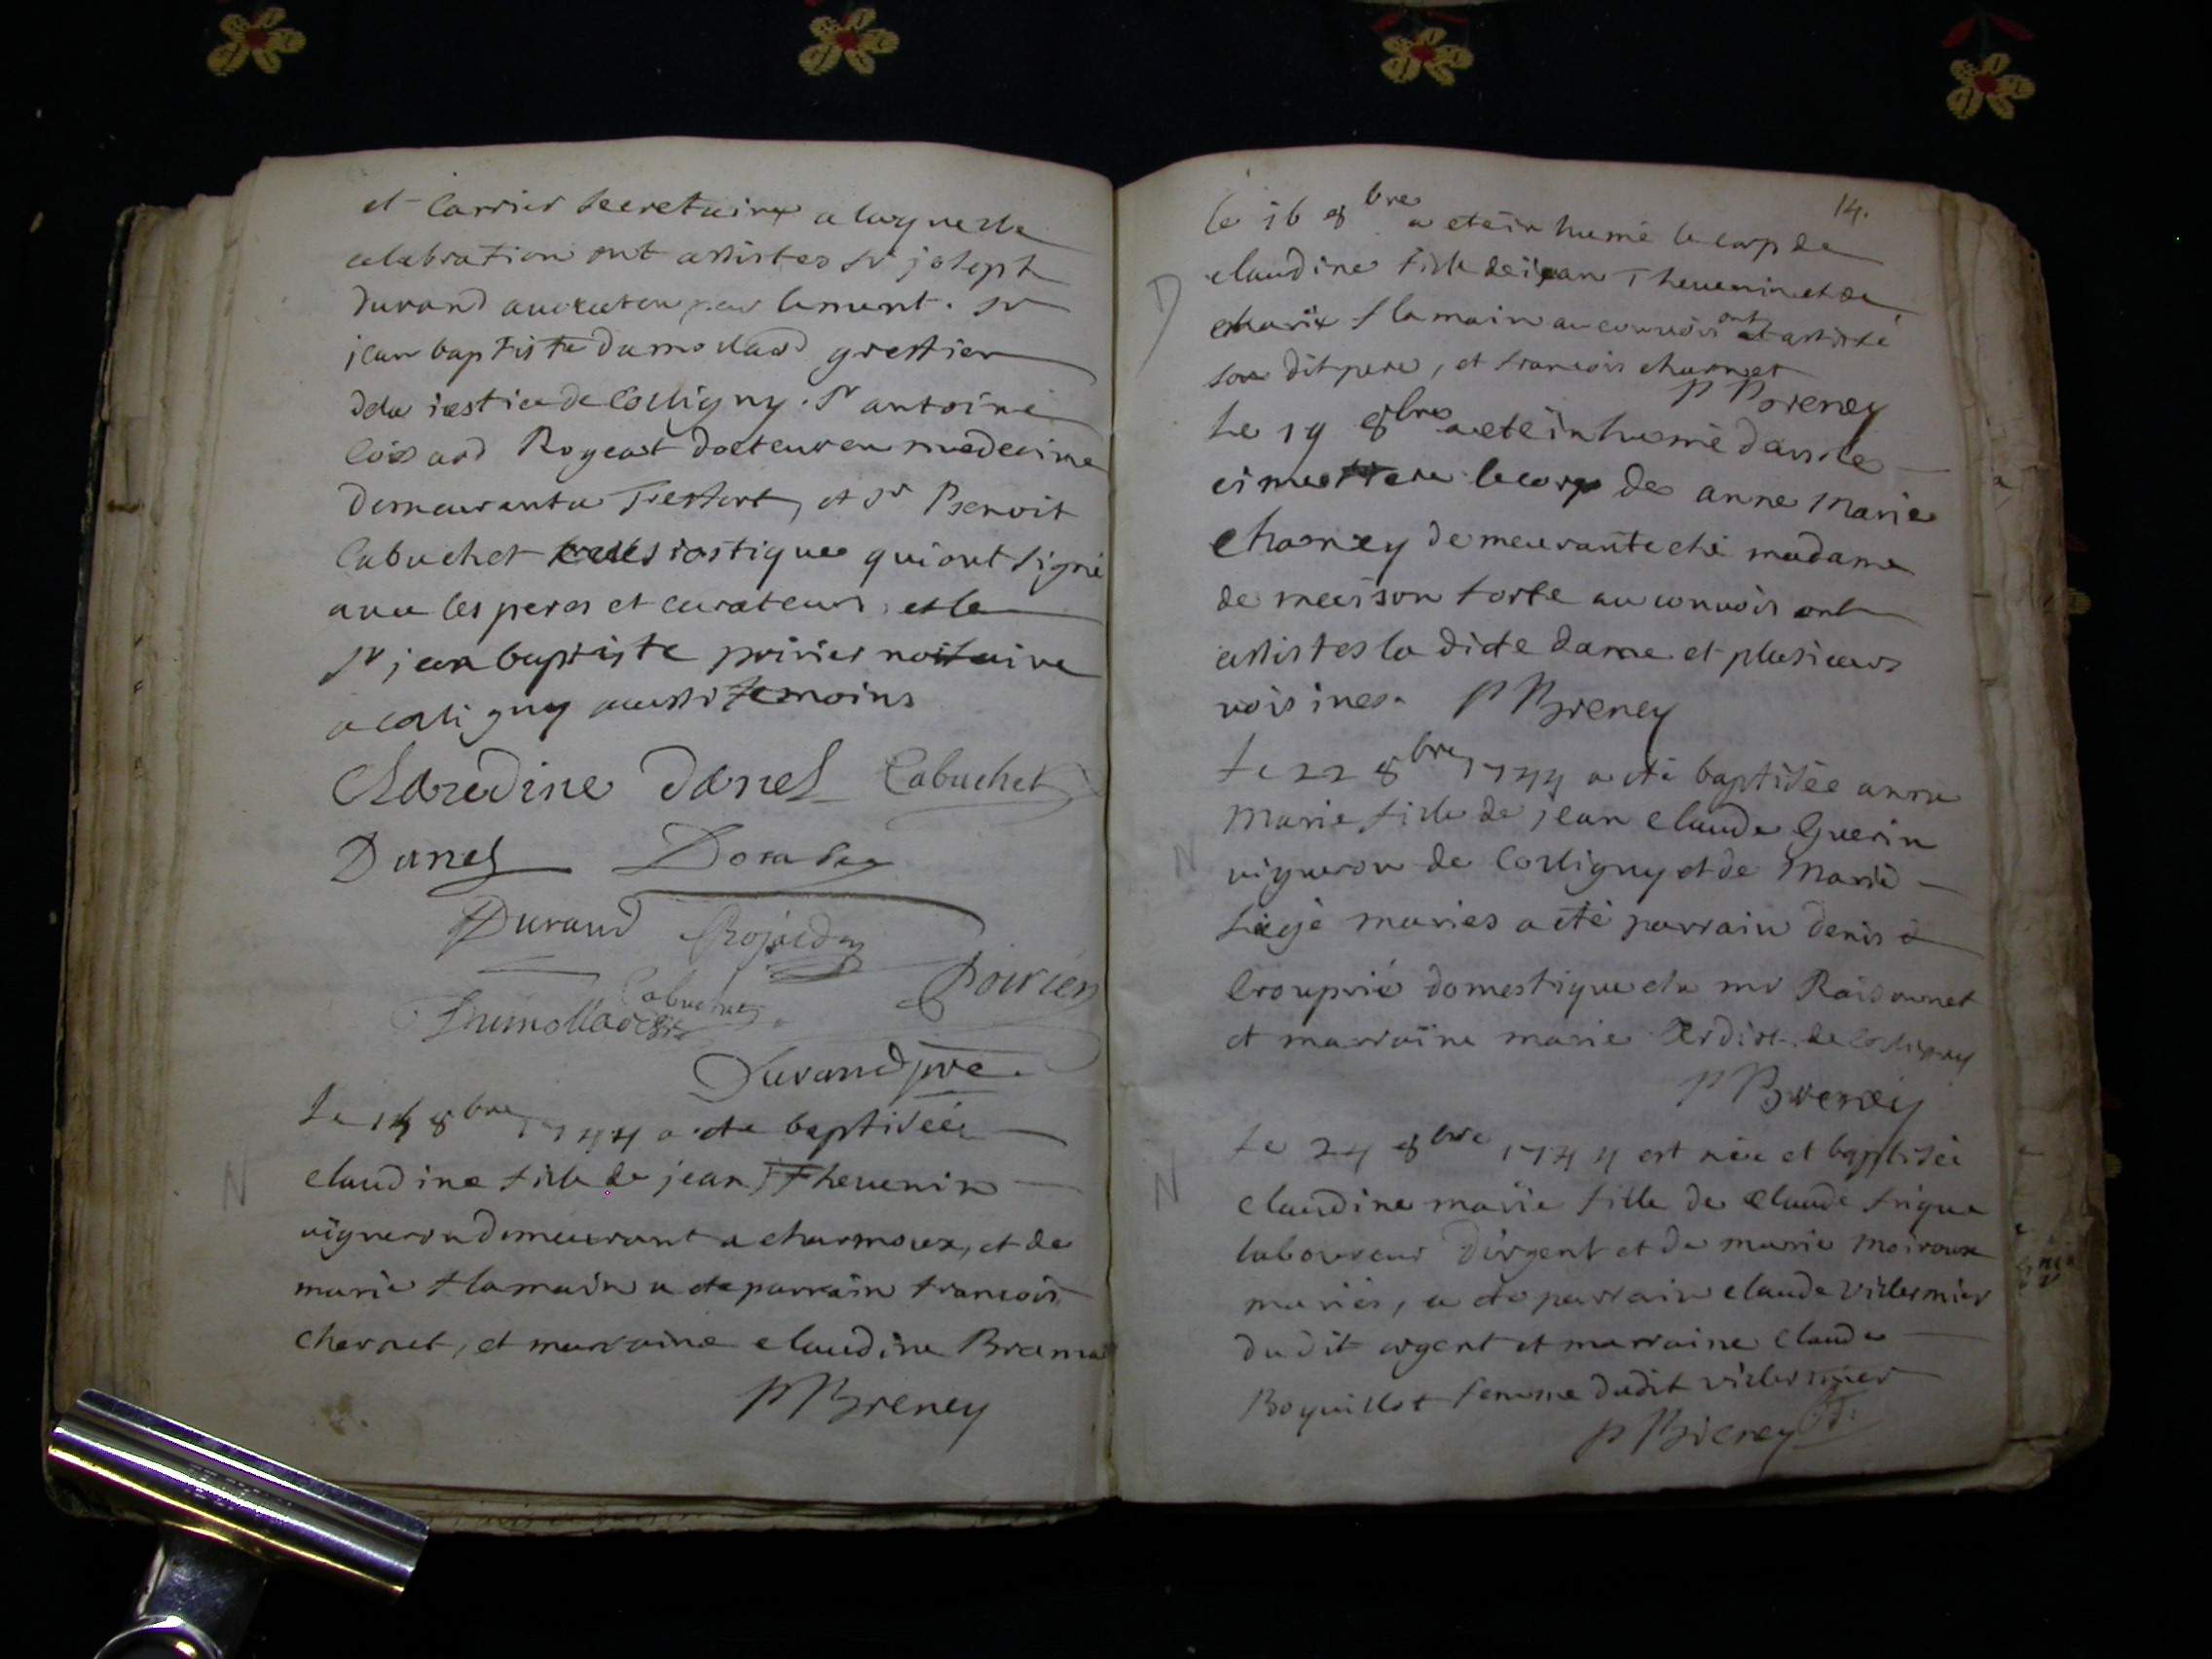 et carrier secretaire a laquelle
celebration ont assistes sr joseph
durand avocat en parlement. sr
jean baptiste dumollard greffier
dela iustice de Colligny. sr antoine
Rogeat docteur en medecine
demeurant a Treffort, et sr Benoit
Cabuchet ecclesiastique qui ont signé
avec les peres et curateurs, et le
sr jean baptiste poirier notaire
a colligny aussi temoins
Claudine danel Cabuchet
Danel
Durand
Cabuchet Poirier
Dumollard
Durand pre.
Le 14 8bre 1744 a ete baptisée
N
claudine fille de jean Thevenin
vigneron demeurant a charmoux, et de
marie flamain a ete parrain francois
Chernet, et marraine claudine
P Breney
14.
le 16 8bre a ete inhumé le corp de
D
claudine fille de jean Thevenin et de
marie flamain au convois ont assisté
son dit pere, et francois charnet
P Breney
Le 19 8bre a ete inhumé dans le
cimettere le corp de anne Marie
Charney demeurante ché madame
de maison forte au convois ont
assistes la dicte dame et plusieurs
voisines. P Breney
Le 22 8bre 1744 a été baptisée anne
Marie fille de jean claude Guerin
N
vigneron de Colligny et de Marie
maries a été parrain denis
Croupié domestique de mr Raisonnet
et marraine marie de Colligny
P Breney
Le 24 8bre 1744 est née et baptisée
N
claudine marie fille de claude frique
laboureur d'irgent et de marie moiroux
mariés, a ete parrain claude villermier
dudit orgent et marraine claude
Boquillot femme dudit villermier
P Breney